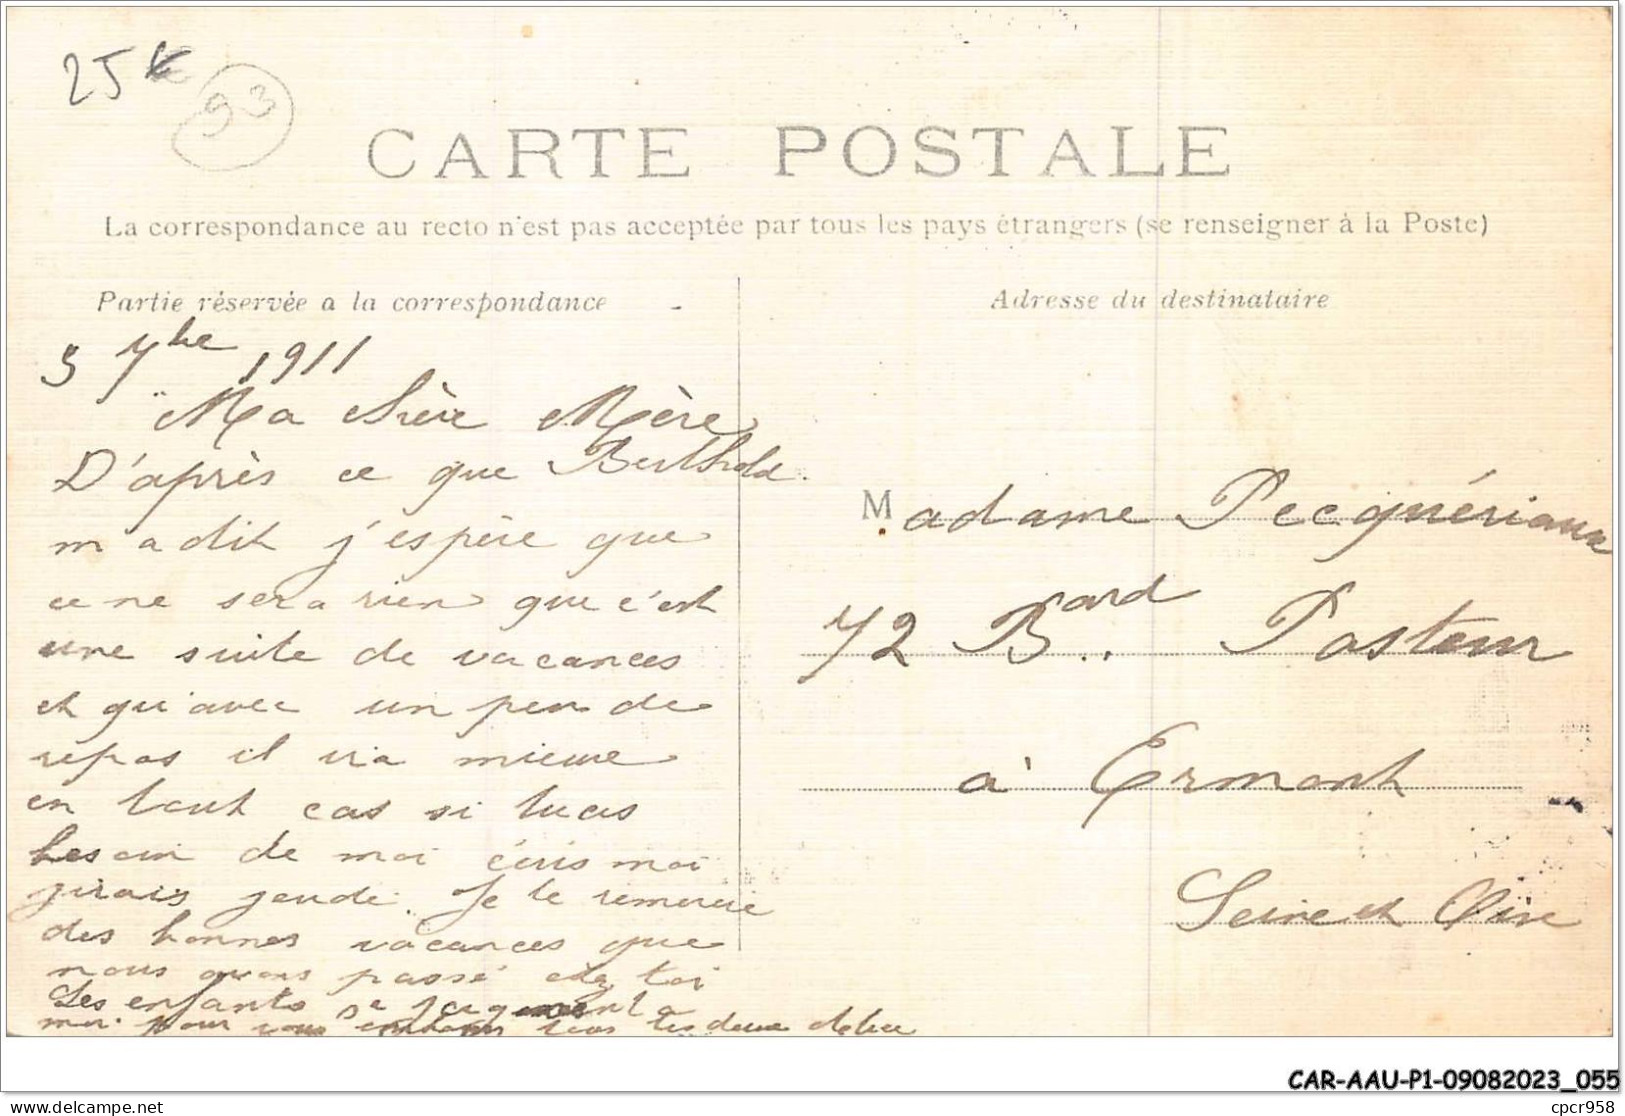 25 €
93
CARTE POSTALE
La correspondance au recto n'est pas acceptée par tous les pays étrangers (se renseigner à la Poste)
Partie réservée a la correspondance -
Adresse du destinataire
3 7bre 1911
Ma Mère
D'après ce que
m a dit j'espère que
ce ne sera rien que c'est
une suite de vacances
et qu'avec un peu de
repos il ira mieux
en tout cas si tu as
besoin de moi écris moi
j'irais jeudi. Je te remercie
des bonnes vacances que
nous avons passé chez toi
Les enfants se
moi pour vous tous les deux
Madame Pecquériaux
72 Bard. Pasteur
à Ermont
Seine et Oise
CAR-AAU-P1-09082023_055
delcampe.net
cpcr958